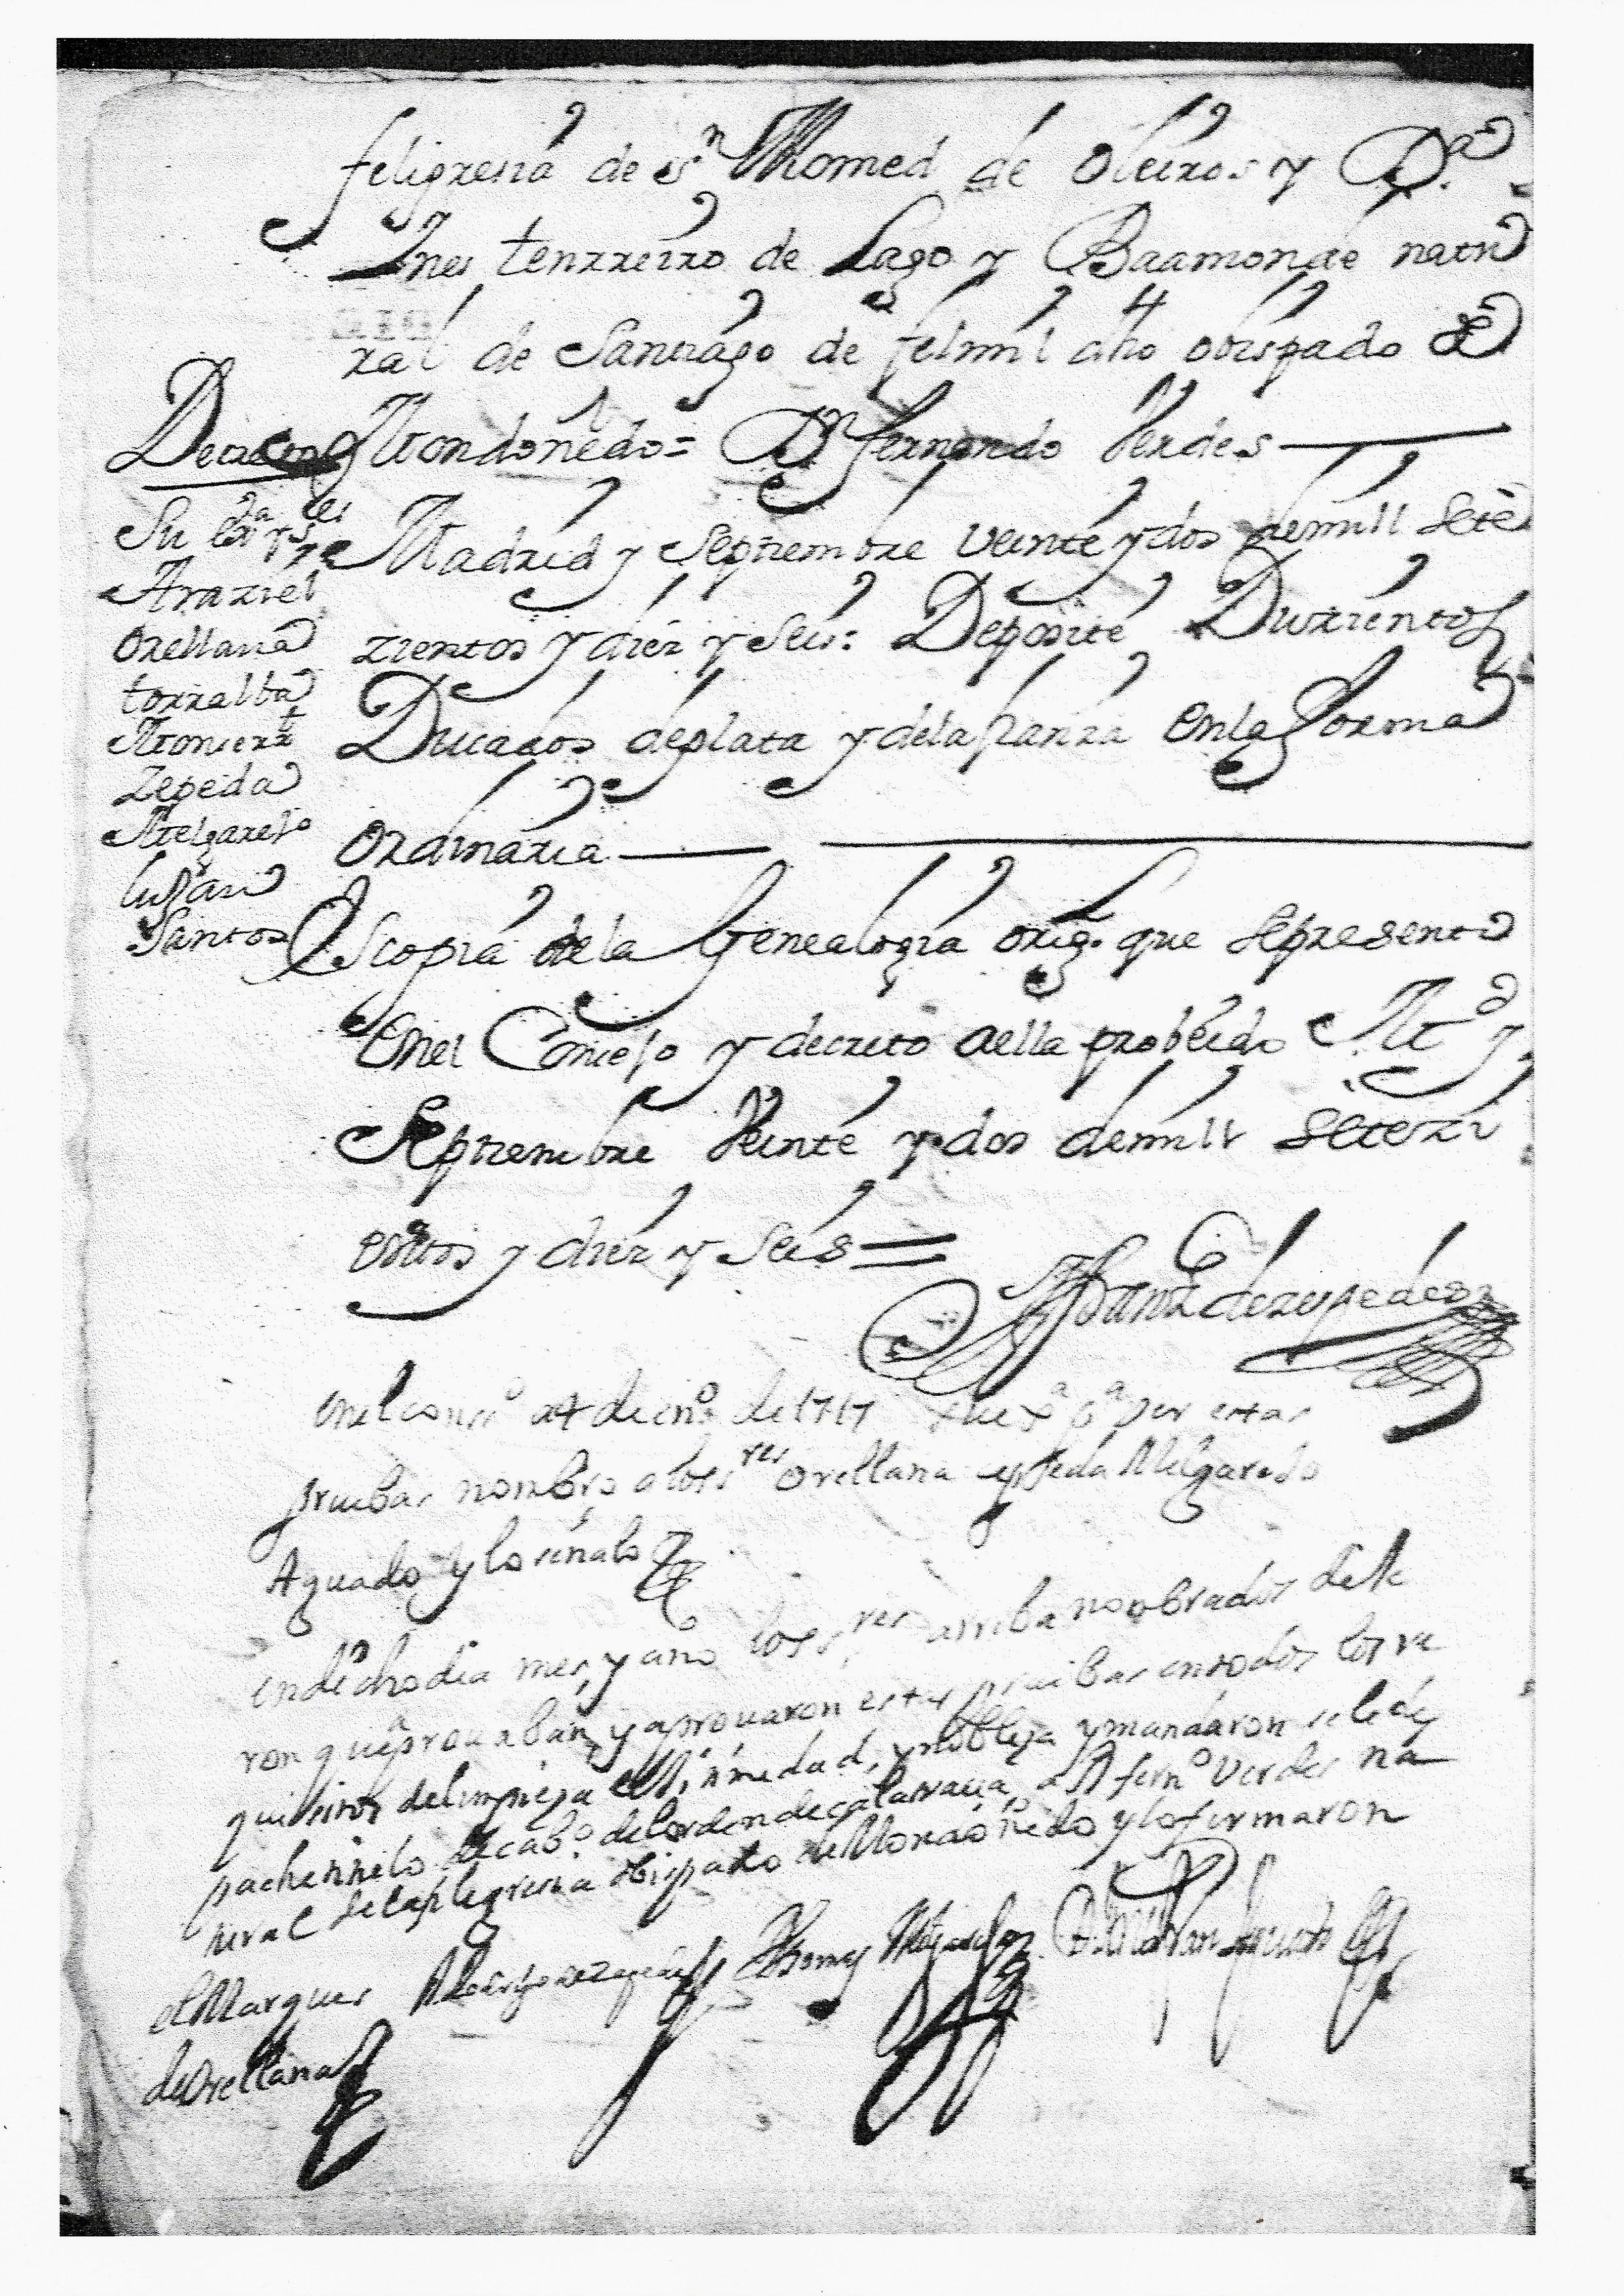 feligresia de Sn Thomed de Oleiros y Da
Ines tenrreiro de Lago y Baamonde natu
ral de Santiago de felmil año obispado de
Mondoñedo = Dn fernando Verdes
Decreto
Su Ia y ses
Araziel
Orellana
torralba
Zepeda
Melgarejo
Luján
Santos
Madrid y Septiembre veinte y dos demill sete
zientos y diez y Seis: Deposite Duzientos
Ducados deplata y dela fianza enla forma
Ordinaria
Es copia dela Genealogia orig. que sepresento
Enel Consejo y decreto aella probeido Md y
Septiembre Veinte y dos demill setezi
entos y diez y Seis =
enel conso a 4 de eno de 1717 por estas
pruebas nombro alos sres Orellana zepeda Melgarejo
Aguado y lo señalo
endichodia mes y año los sres arriba nombrados dixe
ron q aprouaban y aprouaron estas pruibas entodos los re
quisitos delimpieza y nobleza y mandaron se le des
pache titulo de cabo delordendecalatraua a Dn ferno Verdes na
tural delafeligresia obispado de Mondoñedo y lo firmaron
el Marques Thomas Melgarejo
de Orellana